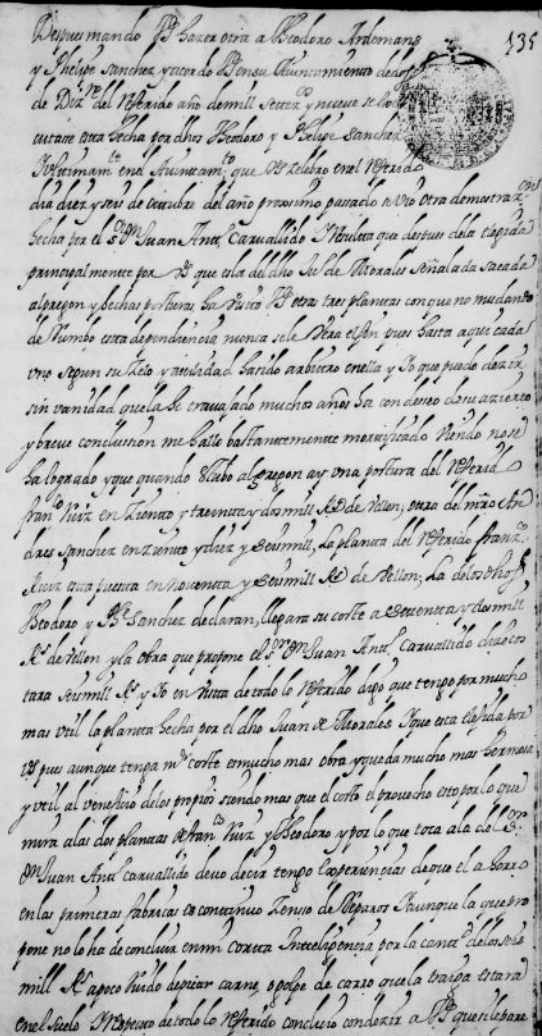 Despues mando VSª hazer otra a Theodoro Ardemans
135
y Phelipe Sanchez y acordo VSª en su Aiuntamiento de dos
de Dizre del referido año de mill setezs y nueve se
cutase esta hecha por dhos Theodoro y Phelipe Sanchez
Vltimamte en el Aiuntamto que VSª zelebro en el referido
dia diez y seis de octubre del año proximo passado a Vio otra demostrazon
hecha por el Sr Dn Juan Antº Carvallido Y Resulta que despues de la elegida
principalmente por VS que es la del dho Juº de Morales señalada sacada
al pregon y hechas posturas, ha visto VSª otras tres plantas con que no mudando
de Rumbo esta dependiencia nunca se le Vera el fin pues hasta aqui cada
vno segun su zelo y avilidad ha sido arbitro en ella y Yo que puedo dezir
sin vanidad que la he travajado muchos años ha con deseo de su azierto
y breve conclussion me hallo bastantemente mortificado viendo no se
ha logrado y que quando estubo al pregon ay vna postura del referido
franco Ruiz en Ziento y treinta y dos mill Rs de vellon; otra del mro An
dres Sanchez en ziento y diez y seis mill, La planta del referido franzco
Ruiz esta puesta en noventa y seis mill Rs de vellon; La de los dhos
Theodoro y Phe Sanchez declaran, llegara su coste a settenta y dos mill
Rs de vellon y la obra que propone el Sr Dn Juan Antº Carvallido dize cos
tara seis mill Rs y Yo en vista de todo lo referido digo que tengo por mucho
mas vtil la planta hecha por el dho Juan de Morales Y que esta elejida por
VS pues aunque tenga ms coste es mucho mas obra y queda mucho mas hermosa
y vtil al veneficio de los propios siendo mas que el costo el provecho esto por lo que
mira a las dos plantas de franco Ruiz y Theodoro y por lo que toca a la del Sr
Dn Juan Antº Carvallido devo decir tengo experiencias de que el ahorro
en las primeras fabricas es continuo Zenso de Reparos Y aunque la que pro
pone no lo ha de concluir en mi corta Intteligencia por la cantd de los seis
mill Rs a poco ruido de picar carne, o golpe de carro que la traiga estara
en el suelo Y respecto de todo lo referido concluio con dezir a VSª que